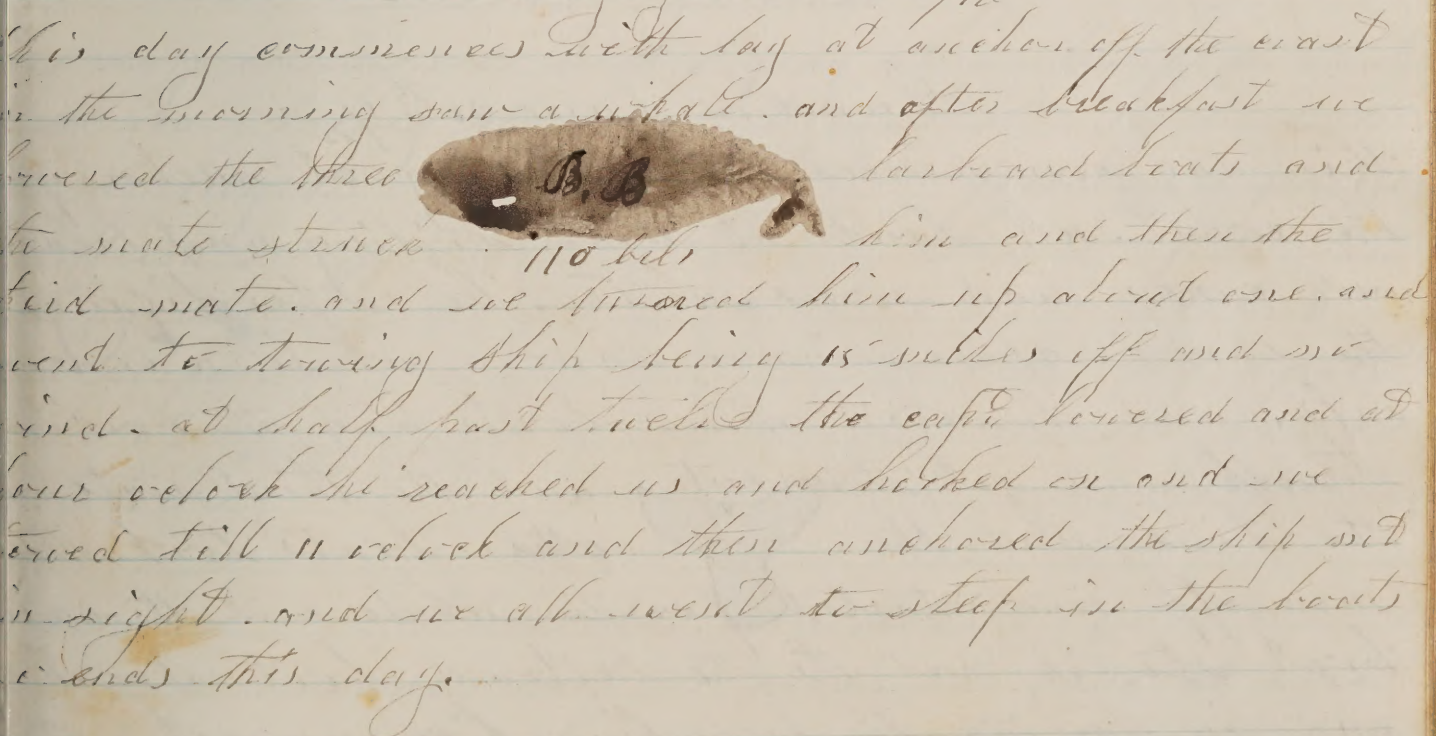 his day commences with lay at anchor off the coast
in the morning saw a whale. and after breakfast we
owered the three larboard boats and
B. B
the mate struck him and then the
110 bbls
hird mate. and we turned him up about one. and
went to towing ship being 15 miles off and no
wind. at half past twelve the capt lowered and at
four oclock he reached us and hooked on and we
towed till 11 oclock and then anchored the ship not
in sight. and we all went to sleep in the boats
o ends this day.